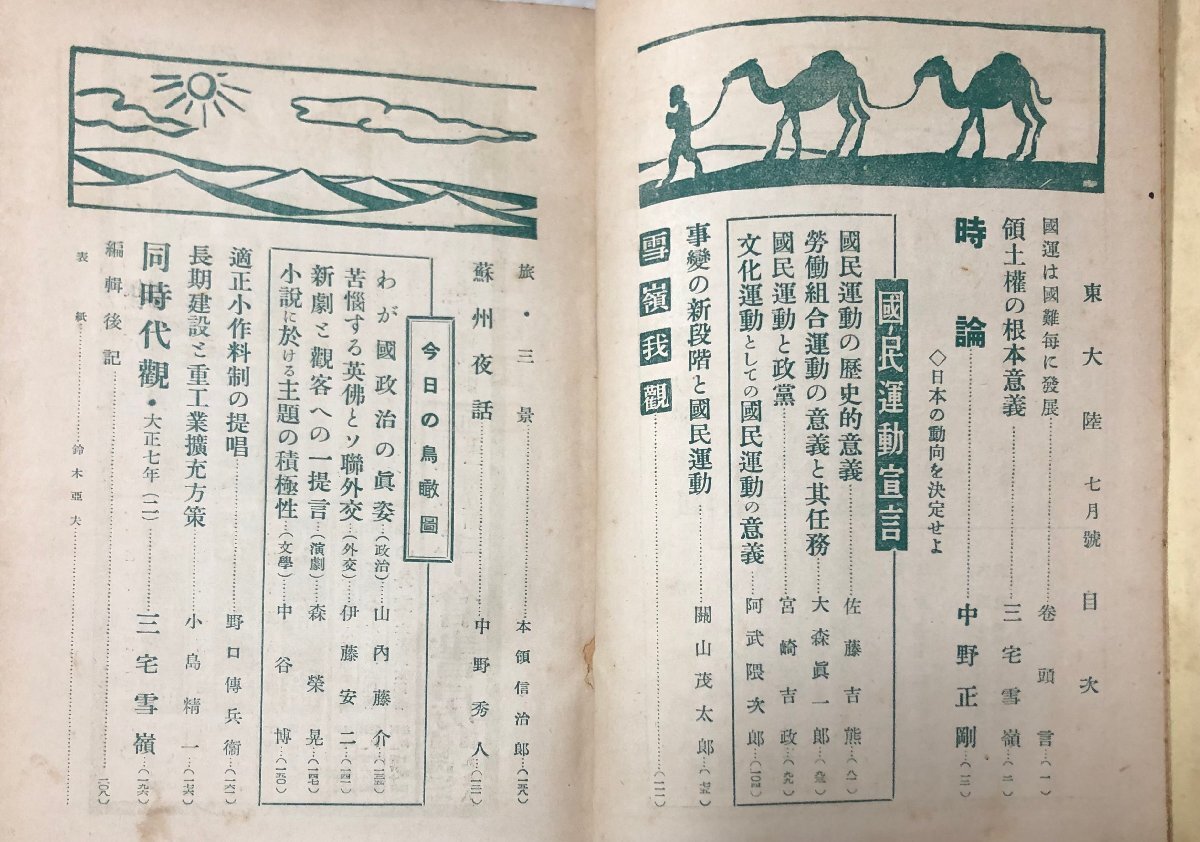 東大陸 七月號 目次
國運は國難每に發展……卷頭言…(一)
領土權の根本意義……三宅雪嶺…(二)
時論……中野正剛…(三)
◇日本の動向を決定せよ
國民運動宣言
國民運動の歷史的意義……佐藤吉熊…(八一)
勞働組合運動の意義と其任務……大森眞一郎…
國民運動と政黨……宮崎吉政…
文化運動としての國民運動の意義……阿武隈次郎…(一〇四)
事變の新段階と國民運動……關山茂太郎…
雪嶺我觀
旅・三景……本領信治郎…
蘇州夜話……中野秀人…
今日の鳥瞰圖
わが國政治の眞姿…(政治)…山內藤介…
苦惱する英佛とソ聯外交…(外交)…伊藤安二…(一四一)
新劇と觀客への一提言…(演劇)…森榮晃…(一四七)
小說に於ける主題の積極性…(文學)…中谷博…(一五〇)
適正小作料制の提唱……野口傳兵衞…
長期建設と重工業擴充方策……小島精一…
同時代觀・大正七年(二)……三宅雪嶺…
編輯後記……
表紙……鈴木亞夫……